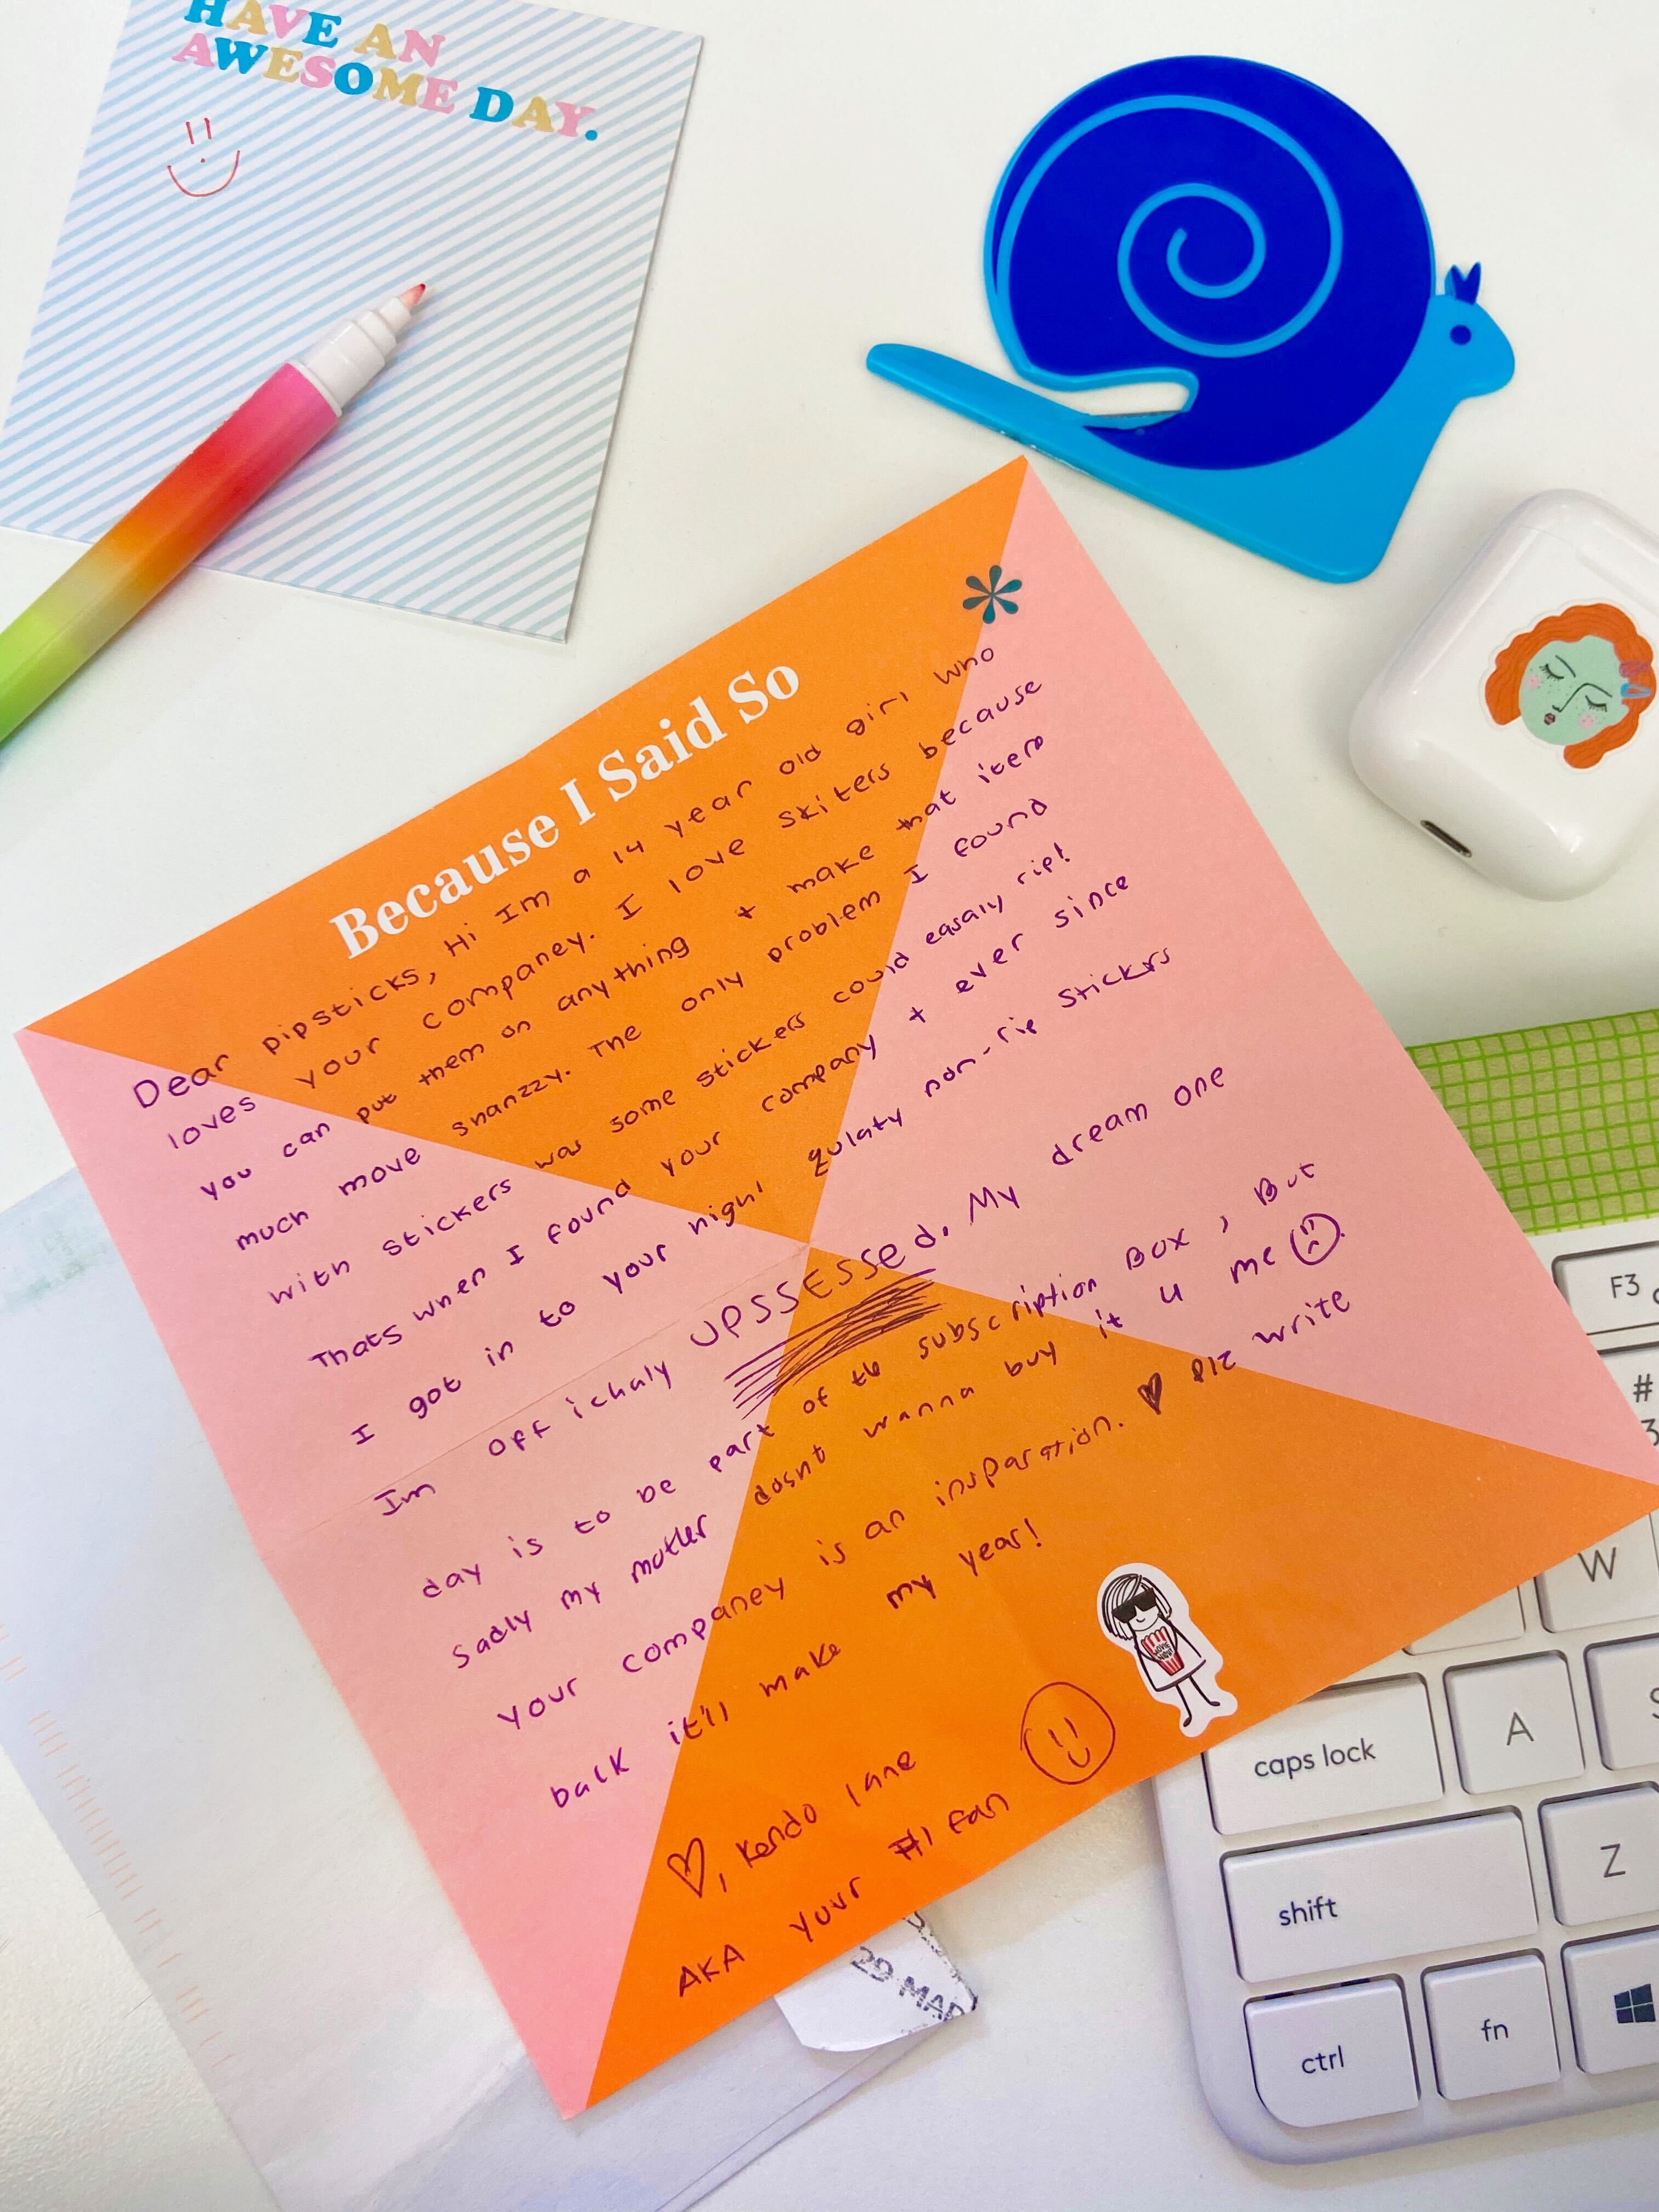 HAVE AN
AWESOME DAY.
Because I Said So
Dear pipsticks, Hi Im a 14 year old girl who
loves your companey. I love skiters because
you can put them on anything + make that item
much move snanzzy. The only problem I found
with stickers was some stickers could easaly rip!
Thats when I found your company + ever since
I got in to your nighl qulaty non-rip stickrs
Im off ichaly UPSSESSed. My dream one
day is to be part of th subscription Box, But
Sadly my mother dosnt wanna buy it 4 me
Your companey is an insparation. ♥ plz write
back it'll make my year!
♡, Kendo lane
AKA yuur #1 fan
MOVIE NIGHT
29 MAR
F3
#
3
W
caps lock
A
S
shift
Z
ctrl
fn